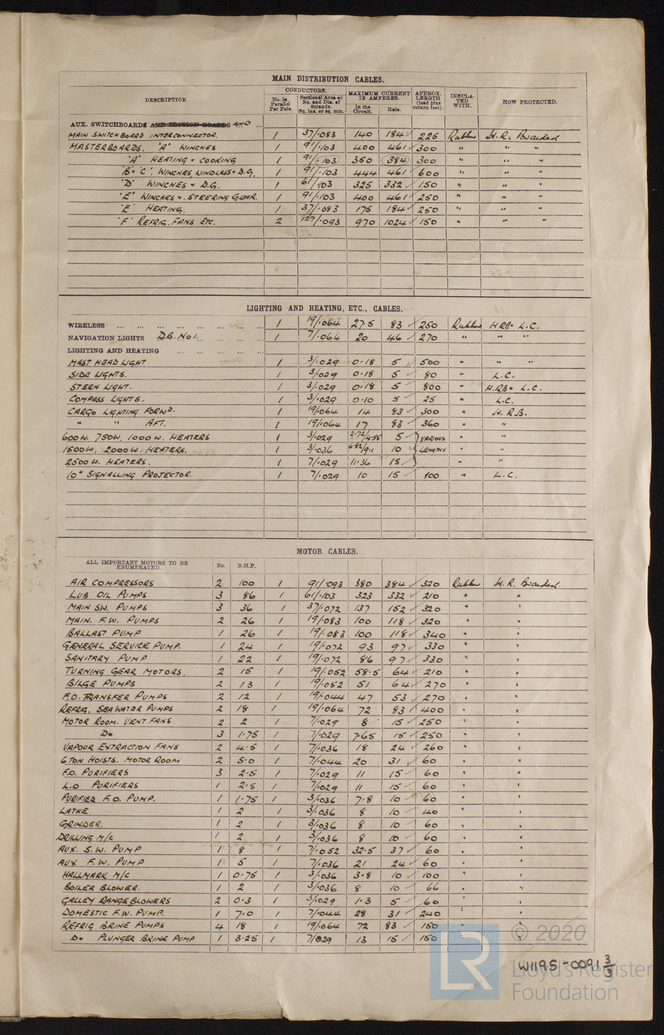 MAIN DISTRIBUTION CABLES.
DESCRIPTION. CONDUCTORS. MAXIMUM CURRENT IN AMPERES. APPROX. LENGTH (lead plus return feet). INSULATED WITH. HOW PROTECTED.
No. in Parallel Per Pole. Sectional Area or No. and Dia. of Strands. Sq. ins. or sq. mm. In the Circuit. Rule.
AUX. SWITCHBOARDS AND SECTION BOARDS AND ...
MAIN SWITCHBOARD INTERCONNECTOR. 1 37/.083 140 184 ✓ 225 Rubber H.R. Braided
MASTERBOARDS. 'A' WINCHES 1 91/.103 400 461 ✓ 300 " " "
'A' HEATING & COOKING 1 91/.103 350 384 ✓ 300 " " "
'B' & 'C', WINCHES, WINDLASS & D.G. 1 91/.103 444 461 ✓ 600 " " "
'D' WINCHES & D.G. 1 61/.103 325 332 ✓ 150 " " "
'E' WINCHES & STEERING GEAR. 1 91/.103 400 461 ✓ 250 " " "
'E' HEATING. 1 37/.083 175 184 ✓ 250 " " "
'F' REFRIG. FANS ETC. 2 127/.093 970 1024 ✓ 150 " " "
LIGHTING AND HEATING, ETC., CABLES.
WIRELESS ... 1 19/.064 27.5 83 ✓ 250 Rubber H.RB & L.C.
NAVIGATION LIGHTS D.B. No1. ... 1 7/.064 20 46 ✓ 270 " " "
LIGHTING AND HEATING ...
MAST HEAD LIGHT 1 3/.029 0.18 5 ✓ 500 " " "
SIDE LIGHTS. 1 3/.029 0.18 5 ✓ 80 " L.C.
STERN LIGHT. 1 3/.029 0.18 5 ✓ 800 " H.RB & L.C.
COMPASS LIGHTS. 1 3/.029 0.10 5 ✓ 25 " L.C.
CARGO LIGHTING FORWD. 1 19/.064 14 83 ✓ 300 " H.R.B.
" " AFT. 1 19/.064 17 83 ✓ 360 " "
600W. 750W. 1000 W. HEATERS 1 3/.029 2.72/4.55 5 ✓ VARIOUS " "
1500W. 2000W. HEATERS. 1 3/.036 6.82/9.1 10 ✓ LENGTHS " "
2500 W. HEATERS. 1 7/.029 11.36 15 ✓ " "
10" SIGNALLING PROJECTOR. 1 7/.029 10 15 ✓ 400 " L.C.
MOTOR CABLES.
ALL IMPORTANT MOTORS TO BE ENUMERATED. No. B.H.P.
AIR COMPRESSORS 2 100 1 91/.093 380 384 ✓ 320 Rubber H.R. Braided
LUB OIL PUMPS 3 86 1 61/.103 323 332 ✓ 210 " "
MAIN SW. PUMPS 3 36 1 37/.072 137 152 ✓ 320 " "
MAIN. F.W. PUMPS 2 26 1 19/.083 100 118 ✓ 320 " "
BALLAST PUMP 1 26 1 19/.083 100 118 ✓ 340 " "
GENERAL SERVICE PUMP. 1 24 1 19/.072 93 97 ✓ 330 " "
SANITARY PUMP 1 22 1 19/.072 86 97 ✓ 330 " "
TURNING GEAR MOTORS. 2 15 1 19/.052 58.5 64 ✓ 210 " "
BILGE PUMPS 2 13 1 19/.052 51 64 ✓ 270 " "
F.O. TRANSFER PUMPS 2 12 1 19/.044 47 53 ✓ 270 " "
REFRIG. SEA WATER PUMPS 2 18 1 19/.064 72 83 ✓ 400 " "
MOTOR ROOM. VENT FANS 2 2 1 7/.029 8 15 ✓ 250 " "
Do 3 1.75 1 7/.029 7.65 15 ✓ 250 " "
VAPOUR EXTRACTION FANS 2 4.5 1 7/.036 18 24 ✓ 260 " "
6 TON HOISTS. MOTOR ROOM 2 5.0 1 7/.044 20 31 ✓ 60 " "
F.O. PURIFIERS 3 2.5 1 7/.029 11 15 ✓ 60 " "
L.O PURIFIERS 1 2.5 1 7/.029 11 15 ✓ 60 " "
PURIFIED F.O. PUMP. 1 1.75 1 3/.036 7.8 10 ✓ 60 " "
LATHE 1 2 1 3/.036 8 10 ✓ 40 " "
GRINDER. 1 2 1 3/.036 8 10 ✓ 60 " "
DRILLING M/C 1 2 1 3/.036 8 10 ✓ 60 " "
AUX. S.W. PUMP 1 8 1 7/.052 32.5 37 ✓ 60 " "
AUX F.W. PUMP 1 5 1 7/.036 21 24 ✓ 60 " "
HALLMARK M/C 1 0.75 1 3/.036 3.8 10 ✓ 100 " "
BOILER BLOWER. 1 2 1 3/.036 8 10 ✓ 66 " "
GALLEY RANGE BLOWERS 2 0.3 1 3/.029 1.3 5 ✓ 60 " "
DOMESTIC F.W. PUMP. 1 7.0 1 7/.044 28 31 ✓ 240 " "
REFRIG BRINE PUMPS 4 18 1 19/.064 72 83 ✓ 150 " "
Do PLUNGER BRINE PUMP 1 3.25 1 7/.029 13 15 ✓ 150 " "
© 2020
W1195-0091 3/3
LR Lloyd's Register
Foundation